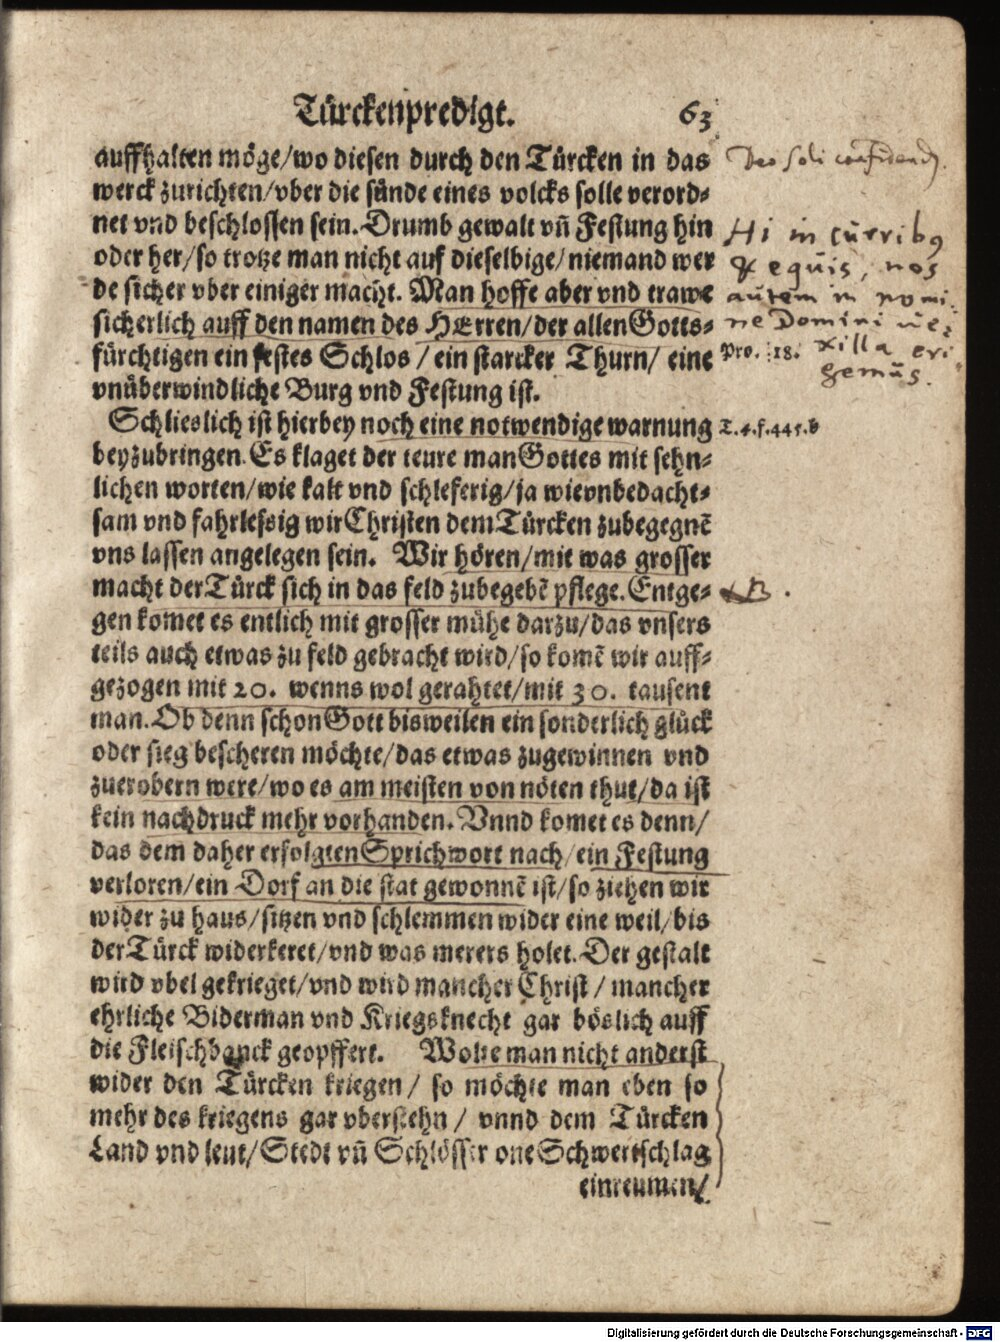 Türckenpredigt. 63
auffhalten möge/wo diesen durch den Türcken in das
werck zurichten/vber die sünde eines volcks solle verord-
net vnd beschlossen sein. Drumb gewalt vñ Festung hin
oder her/so trotze man nicht auf dieselbige/niemand wer
de sicher vber einiger macht. Man hoffe aber vnd trawe
sicherlich auff den namen des HErren/der allen Gotts-
fürchtigen ein festes Schlos/ein starcker Thurn/eine
vnüberwindliche Burg vnd Festung ist.
Schlieslich ist hierbey noch eine notwendige warnung
beyzubringen. Es klaget der teure man Gottes mit sehn-
lichen worten/wie kalt vnd schleferig/ja wie vnbedacht-
sam vnd fahrlessig wir Christen dem Türcken zubegegnẽ
vns lassen angelegen sein. Wir hören/mit was grosser
macht der Türck sich in das feld zubegebẽ pflege. Entge-
gen komet es entlich mit grosser mühe darzu/das vnsers
teils auch etwas zu feld gebracht wird/so komẽ wir auff-
gezogen mit 20. wenns wol gerahtet/mit 30. tausent
man. Ob denn schon Gott bisweilen ein sonderlich glück
oder sieg bescheren möchte/das etwas zugewinnen vnd
zuerobern were/wo es am meisten von nöten thut/da ist
kein nachdruck mehr vorhanden. Vnnd komet es denn/
das dem daher erfolgten Sprichwort nach/ein Festung
verloren/ein Dorf an die stat gewonnẽ ist/so ziehen wir
wider zu haus/sitzen vnd schlemmen wider eine weil/bis
der Türck widerkeret/vnd was merers holet. Der gestalt
wird vbel gekrieget/vnd wird mancher Christ/mancher
ehrliche Biderman vnd Kriegsknecht gar böslich auff
die Fleischbanck geopffert. Wolte man nicht anderst
wider den Türcken kriegen/so möchte man eben so
mehr des kriegens gar vberstehn/vnnd dem Türcken
Land vnd leut/Stedt vñ Schlösser one Schwertschlag
einreumen/
Deo soli
Hi in curribus
& equis, nos
autem in nomi
ne Domini ue-
xilla eri
gemus.
Pro. 18.
T.4.f.445.b
Digitalisierung gefördert durch die Deutsche Forschungsgemeinschaft - DFG